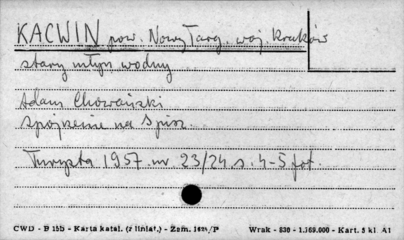 KACWIN pow. Nowy Targ. woj Kraków
stary młyn wodny
Adam Chowański
Spojrzenie na Spisz
Turysta 1957. nr 23/24 s. 4-5 fot.
CWD - P 15b - Karta katal. (z liniat.) - Zam. /P Wrak - 830 - 1.169.000 - Kart. 5 kl A1